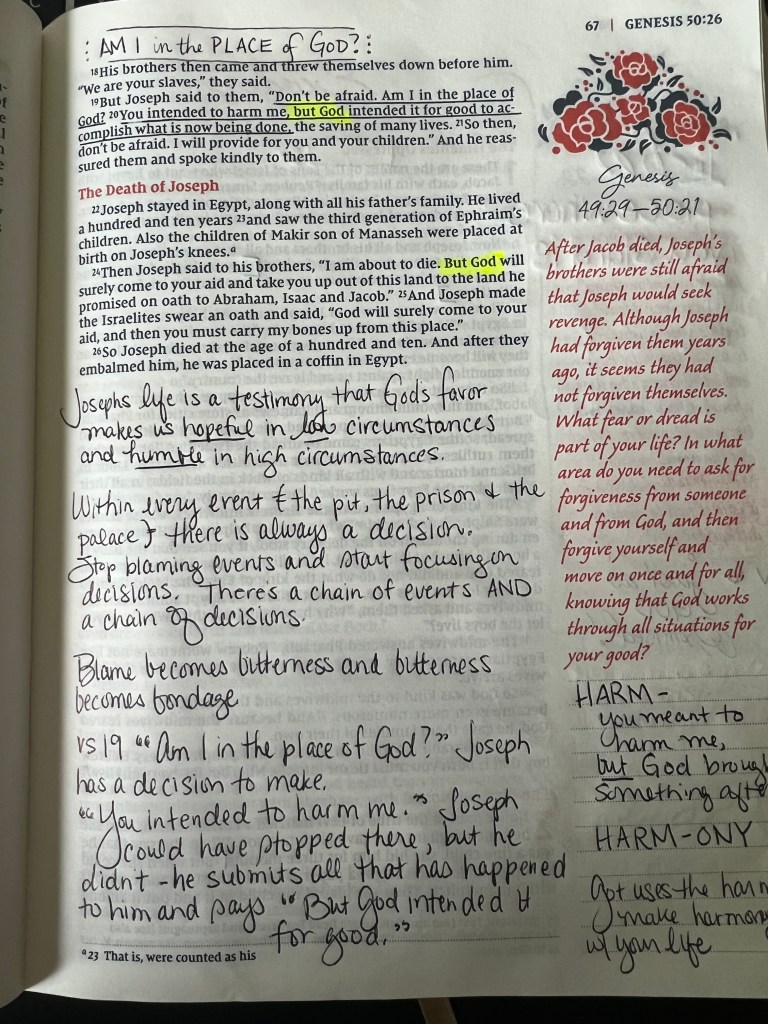 67 | GENESIS 50:26
AM I in the PLACE of GOD?
18His brothers then came and threw themselves down before him.
"We are your slaves," they said.
19But Joseph said to them, "Don't be afraid. Am I in the place of
God? 20You intended to harm me, but God intended it for good to ac-
complish what is now being done, the saving of many lives. 21So then,
don't be afraid. I will provide for you and your children." And he reas-
sured them and spoke kindly to them.
The Death of Joseph
22Joseph stayed in Egypt, along with all his father's family. He lived
a hundred and ten years 23and saw the third generation of Ephraim's
children. Also the children of Makir son of Manasseh were placed at
birth on Joseph's knees.a
24Then Joseph said to his brothers, "I am about to die. But God will
surely come to your aid and take you up out of this land to the land he
promised on oath to Abraham, Isaac and Jacob." 25And Joseph made
the Israelites swear an oath and said, "God will surely come to your
aid, and then you must carry my bones up from this place."
26So Joseph died at the age of a hundred and ten. And after they
embalmed him, he was placed in a coffin in Egypt.
Josephs life is a testimony that God's favor
makes us hopeful in low circumstances
and humble in high circumstances.
Within every event { the pit, the prison & the
palace } there is always a decision.
Stop blaming events and start focusing on
decisions. There's a chain of events AND
a chain of decisions.
Blame becomes bitterness and bitterness
becomes bondage
vs 19 "Am I in the place of God?" Joseph
has a decision to make.
"You intended to harm me." Joseph
could have stopped there, but he
didnt - he submits all that has happened
to him and says "But God intended it
for good."
a23 That is, were counted as his
Genesis
49:29–50:21
After Jacob died, Joseph's
brothers were still afraid
that Joseph would seek
revenge. Although Joseph
had forgiven them years
ago, it seems they had
not forgiven themselves.
What fear or dread is
part of your life? In what
area do you need to ask for
forgiveness from someone
and from God, and then
forgive yourself and
move on once and for all,
knowing that God works
through all situations for
your good?
HARM -
you meant to
harm me,
but God brough
something afte
HARM-ONY
uses the harm
make harmony
w/ your life